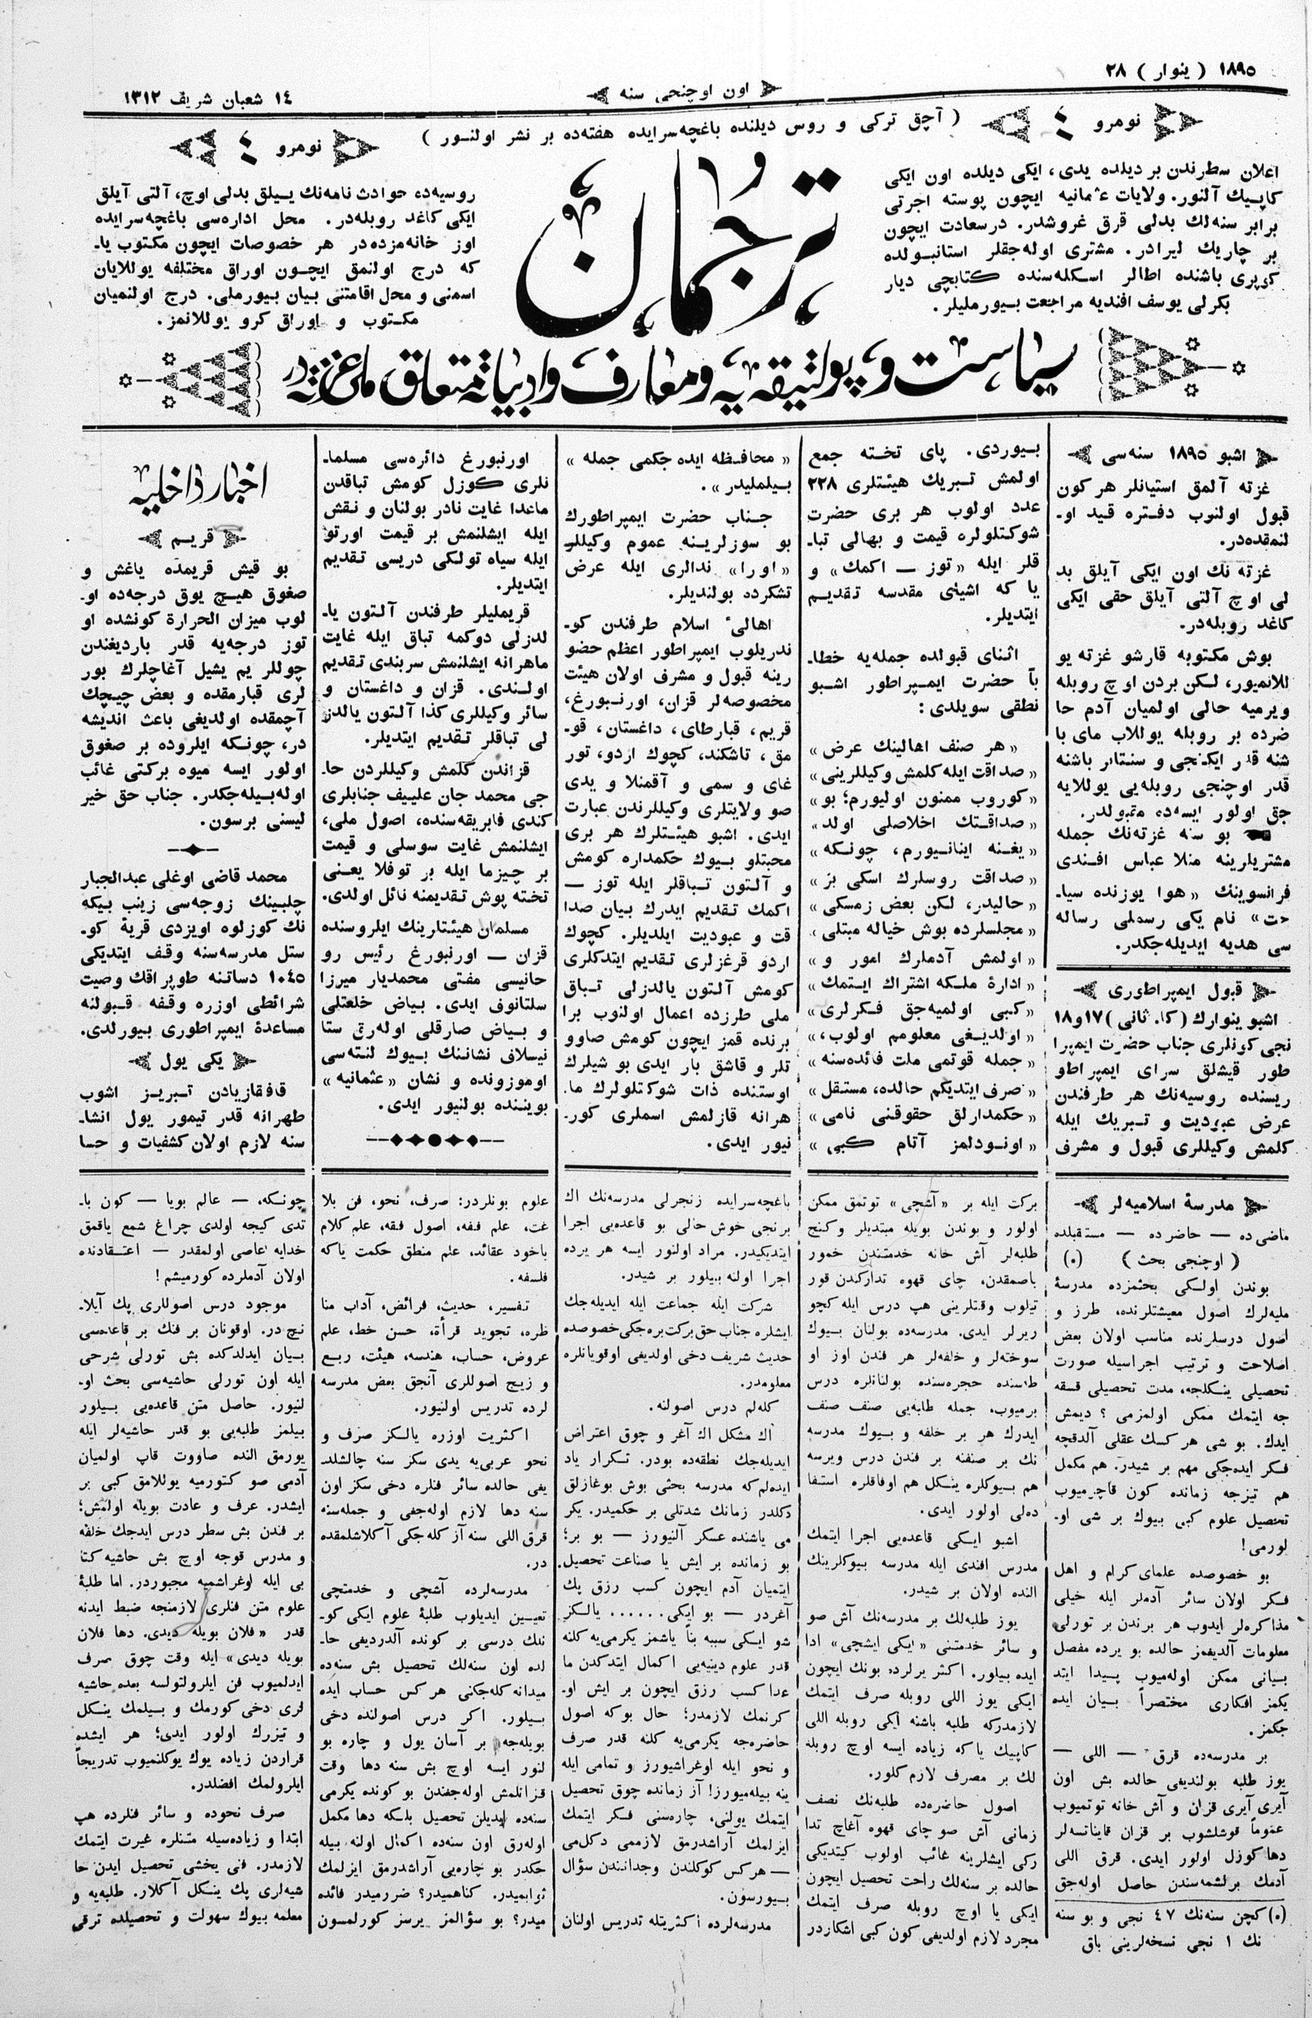 ١٨٩٥ ( ینوار ) ٢٨
اون اوچنجی سنه
١٤ شعبان شریف ١٣١٢
نومرو ٤
( آچق ترکی و روس دیلنده باغچه‌سرایده هفته‌ده بر نشر اولنور )
نومرو ٤
اعلان سطرندن بر دیلده یدی، ایکی دیلده اون ایکی
کاپیك آلنور. ولایات عثمانیه ایچون پوسته اجرتی
برابر سنه‌لك بدلی قرق غروشدر. درسعادت ایچون
بر چاریك لیرادر. مشتری اوله‌جقلر استانبولده
کوپری باشنده اطالر اسکله‌سنده کتابچی دیار
بکرلی یوسف افندیه مراجعت بیورملیلر.
ترجمان
روسیه‌ده حوادث نامه‌نك ییلق بدلی اوچ، آلتی آیلق
ایکی کاغد روبله‌در. محل اداره‌سی باغچه‌سرایده
اوز خانه‌مزده‌در هر خصوصات ایچون مکتوب یا۔
که درج اولنمق ایچون اوراق مختلفه یوللایان
اسمنی و محل اقامتنی بیان بیورملی. درج اولنمیان
مکتوب و اوراق کرو یوللانمز.
سیاست و پولتیقه‌یه و معارف و ادبیاته متعلق ملی غزته‌در
اشبو ١٨٩٥ سنه‌سی
غزته آلمق استیانلر هر کون
قبول اولنوب دفتره قید او۔
لنمقده‌در.
غزته نك اون ایکی آیلق بد
لی اوچ آلتی آیلق حقی ایکی
کاغد روبله‌در.
بوش مکتوبه قارشو غزته یو
للانمیور، لکن بردن اوچ روبله
ویرمیه حالی اولمیان آدم حا
ضرده بر روبله یوللاب مای با
شنه قدر ایکنجی و سنتابر باشنه
قدر اوچنجی روبله‌یی یوللایه
جق اولور ایسه‌ده مقبولدر.
بو سنه غزته‌نك جمله
مشتریلرینه منلا عباس افندی
فرانسوینك «هوا یوزنده سیا۔
حت» نام یکی رسملی رساله
سی هدیه ایدیله‌جکدر.
قبول ایمپراطوری
اشبو ینوارك (کا. ثانی) ١٧و١٨
نجی کونلری جناب حضرت ایمپرا
طور قیشلق سرای ایمپراطو
ریسنده روسیه‌نك هر طرفندن
عرض عبودیت و تبریك ایله
کلمش وکیللری قبول و مشرف
بیوردی. پای تخته جمع
اولمش تبریك هیئتلری ٢٢٨
عدد اولوب هر بری حضرت
شوکتلولره قیمت و بهالی تبا۔
قلر ایله «توز — اکمك» و
یا که اشیئی مقدسه تقدیم
ایتدیلر.
اثنای قبولده جمله‌یه خطا۔
باً حضرت ایمپراطور اشبو
نطقی سویلدی:
« هر صنف اهالینك عرض »
« صداقت ایله کلمش وکیللرینی »
« کوروب ممنون اولیورم؛ بو »
« صداقتك اخلاصلی اولد »
« یغنه اینانیورم، چونکه »
« صداقت روسلرك اسکی بز »
« حالیدر، لکن بعض زمسکی »
« مجلسلرده بوش خیاله مبتلی »
« اولمش آدملرك امور و »
« ادارۀ ملکه اشتراك ایتمك »
« کبی اولمیه‌جق فکرلری »
« اولدیغی معلومم اولوب، »
« جمله قوتمی ملت فائده‌سنه »
« صرف ایتدیکم حالده، مستقل »
« حکمدارلق حقوقنی نامی »
« اونودلمز آتام کبی »
« محافظه ایده جکمی جمله »
« بیلملیدر ».
جناب حضرت ایمپراطورك
بو سوزلرینه عموم وکیللر
«اورا» ندالری ایله عرض
تشکرده بولندیلر.
اهالیء اسلام طرفندن کو۔
ندریلوب ایمپراطور اعظم حضو
رینه قبول و مشرف اولان هیئت
مخصوصه‌لر قزان، اورنبورغ،
قریم، قبارطای، داغستان، قو۔
مق، تاشکند، کچوك اردو، تور
غای و سمی و آقمنلا و یدی
صو ولایتلری وکیللرندن عبارت
ایدی. اشبو هیئتلرك هر بری
محبتلو بیوك حکمداره کومش
و آلتون تباقلر ایله توز —
اکمك تقدیم ایدرك بیان صدا
قت و عبودیت ایلدیلر. کچوك
اردو قرغزلری تقدیم ایتدکلری
کومش آلتون یالدزلی تباق
ملی طرزده اعمال اولنوب برا
برنده قمز ایچون کومش صاوو
تلر و قاشق بار ایدی بو شیلرك
اوستنده ذات شوکتلولرك ما۔
هرانه قازلمش اسملری کور۔
نیور ایدی.
اورنبورغ دائره‌سی مسلما۔
نلری کوزل کومش تباقدن
ماعدا غایت نادر بولنان و نقش
ایله ایشلنمش بر قیمت اورتو
ایله سیاه تولکی دریسی تقدیم
ایتدیلر.
قریملیلر طرفندن آلتون یا۔
لدزلی دوکمه تباق ایله غایت
ماهرانه ایشلنمش سربندی تقدیم
اولندی. قزان و داغستان و
سائر وکیللری کذا آلتون یالدز
لی تباقلر تقدیم ایتدیلر.
قزاندن کلمش وکیللردن حا۔
جی محمد جان علییف جنابلری
کندی فابریقه‌سنده، اصول ملی،
ایشلنمش غایت سوسلی و قیمت
بر چیزما ایله بر توفلا یعنی
تخته پوش تقدیمنه نائل اولدی.
مسلمان هیئتلرینك ایلروسنده
قزان — اورنبورغ رئیس رو
حانیسی مفتی محمدیار میرزا
سلتانوف ایدی. بیاض خلعتلی
و بیاض صارقلی اوله‌رق ستا
نیسلاف نشاننك بیوك لنته‌سی
اوموزونده و نشان «عثمانیه»
بویننده بولنیور ایدی.
اخبار داخلیه
قریم
بو قیش قریمده یاغش و
صغوق هیچ یوق درجه‌ده او۔
لوب میزان الحرارة کونشده او
توز درجه‌یه قدر باردیغندن
چوللر یم یشیل آغاچلرك بور
لری قبارمقده و بعض چیچك
آچمقده اولدیغی باعث اندیشه
در، چونکه ایلروده بر صغوق
اولور ایسه میوه برکتی غائب
اوله‌بیله‌جکدر. جناب حق خیر
لیسنی برسون.
محمد قاضی اوغلی عبدالجبار
چلبینك زوجه‌سی زینب بیکه
نك کوزلوه اویزدی قریۀ کو۔
ستل مدرسه‌سنه وقف ایتدیکی
١٠٤٥ دساتنه طوپراقك وصیت
شرائطی اوزره وقفه قبولنه
مساعدۀ ایمپراطوری بیورلدی.
یکی یول
قافقازیادن تبریز اشوب
طهرانه قدر تیمور یول انشا۔
سنه لازم اولان کشفیات و حسا
مدرسۀ اسلامیه‌لر
ماضی‌ده — حاضرده — مستقبلده
( اوچنجی بحث ) (٥)
بوندن اولکی بحثمزده مدرسۀ
ملیه‌لرك اصول معیشتلرنده، طرز و
اصول درسلرنده مناسب اولان بعض
اصلاحت و ترتیب اجراسیله صورت
تحصیلی ینکلجه، مدت تحصیلی قسقه
جه ایتمك ممکن اولمزمی؟ دیمش
ایدك. بو شی هر کسك عقلی آلدقچه
فکر ایده‌جکی مهم بر شیدر. هم مکمل
هم تیزجه زمانده کون قاچرمیوب
تحصیل علوم کبی بیوك بر شی او۔
لورمی!
بو خصوصده علمای کرام و اهل
فکر اولان سائر آدملر ایله خیلی
مذاکره‌لر ایدوب هر برندن بر تورلی
معلومات آلدیغمز حالده بو یرده مفصل
بیانی ممکن اوله‌میوب پیدا ایتد
یکمز افکاری مختصراً بیان ایده
جکمز.
بر مدرسه‌ده قرق — اللی —
یوز طلبه بولندیغی حالده بش اون
آیری آیری قزان و آش خانه توتمیوب
عموماً قوشلشوب بر قزان قایناتسه‌لر
دها کوزل اولور ایدی. قرق اللی
آدمك برلشمه‌سندن حاصل اوله‌جق
(٥) کچن سنه‌نك ٤٧ نجی و بو سنه
نك ١ نجی نسخه‌لرینی باق
برکت ایله بر «آشچی» توتمق ممکن
اولور و بوندن بویله مبتدیلر وکنچ
طلبه‌لر آش خانه خدمتندن خمور
باصمقدن، چای قهوه تدارکیدن قور
تیلوب وقتلرینی هپ درس ایله کچو
ریرلر ایدی. مدرسه‌ده بولنان بیوك
سوخته‌لر و خلفه‌لر هر فندن اوز او
طه‌سنده حجره‌سنده بولنانلره درس
برمیوب، جمله طلبه‌یی صنف صنف
ایدرك هر بر خلفه و بیوك مدرسه
نك بر صنفنه بر فندن درس ویرسه
هم بیوکلره ینکل هم اوفاقلره استفا
ده‌لی اولور ایدی.
اشبو ایکی قاعده‌یی اجرا ایتمك
مدرس افندی ایله مدرسه بیوکلرینك
النده اولان بر شیدر.
یوز طلبه‌لك بر مدرسه‌نك آش صو
و سائر خدمتنی «ایکی ایشچی» ادا
ایده بیلور. اکثر یرلرده بونك ایچون
ایکی یوز اللی روبله صرف ایتمك
لازمدرکه طلبه باشنه ایکی روبله اللی
کاپیك یا که زیاده ایسه اوچ روبله
لك بر مصرف لازم کلور.
اصول حاضره‌ده طلبه‌نك نصف
زمانی آش صو چای قهوه آغاچ تدا
رکی ایشلرینه غائب اولوب کیتدیکی
حالده بر سنه‌لك راحت تحصیل ایچون
ایکی یا اوچ روبله صرف ایتمك
مجرد لازم اولدیغی کون کبی اشکاردر
باغچه‌سرایده زنجرلی مدرسه‌نك اك
برنجی خوش حالی بو قاعده‌یی اجرا
ایتدیکیدر. مراد اولنور ایسه هر یرده
اجرا اوله بیلور بر شیدر.
شرکت ایله جماعت ایله ایدیله‌جك
ایشلره جناب حق برکت بره‌جکی خصوصده
حدیث شریف دخی اولدیغی اوقویانلره
معلومدر.
کله‌لم درس اصولنه.
اك مشکل اك آغر و چوق اعتراض
ایدیله‌جك نطقه‌ده بودر. تکرار یاد
ایده‌لم‌که مدرسه بحثی بوش بوغازلق
دکلدر زمانك شدتلی بر حکمیدر. یکر
می یاشنده عسکر آلنیورز — بو بر؛
بو زمانده بر ایش یا صناعت تحصیل
ایتمیان آدم ایچون کسب رزق پك
آغردر — بو ایکی...... یالکز
شو ایکی سببه بناً یاشمز یکرمی‌یه کلنه
قدر علوم دینیه‌یی اکمال ایتدکدن ما
عدا کسب رزق ایچون بر ایش او۔
کرنمك لازمدر؛ حال بوکه اصول
حاضره‌جه یکرمی‌یه کلنه قدر صرف
و نحو ایله اوغراشیورز و تمامی ایله
ینه بیله‌میورز! آز زمانده چوق تحصیل
ایتمك یولنی، چاره‌سنی فکر ایتمك
ایزلمك آراشدرمق لازممی دکل‌می
— هر کس کوکلندن وجدانندن سؤال
بیورسون.
مدرسه‌لرده اکثریتله تدریس اولنان
علوم بونلردر: صرف، نحو، فن بلا
غت، علم فقه، اصول فقه، علم کلام
یاخود عقائد، علم منطق حکمت یا که
فلسفه.
تفسیر، حدیث، فرائض، آداب منا
ظره، تجوید قرأة، حسن خط، علم
عروض، حساب، هندسه، هیئت، ربع
و زیج اصوللری آنجق بعض مدرسه
لرده تدریس اولنیور.
اکثریت اوزره یالکز صرف و
نحو عربی‌یه یدی سکز سنه چالشلد۔
یغی حالده سائر فنلره دخی سکز اون
سنه دها لازم اوله‌جغی و جمله‌سنه
قرق اللی سنه آز کله‌جکی آکلاشلمقده
در.
مدرسه‌لرده آشچی و خدمتچی
تعیین ایدیلوب طلبۀ علوم ایکی کو۔
ننك درسی بر کونده آلدردیغی حا۔
لده اون سنه‌لك تحصیل بش سنه‌ده
میدانه کله‌جکنی هر کس حساب ایده
بیلور. اکر درس اصولنده دخی
بویله‌جه بر آسان یول و چاره بو
لنور ایسه اوچ بش سنه دها وقت
قزانلمش اوله‌جغندن بو کونده یکرمی
سنه‌ده ایدیلن تحصیل بلکه دها مکمل
اوله‌رق اون سنه‌ده اکمال اولنه بیله
جکدر بو چاره‌یی آراشدرمق ایزلمك
ثوابمیدر. کناهمیدر؟ ضررمیدر فائده
میدر؟ بو سؤالمز یرسز کورلمسون
چونکه، — عالم بویا — کون با۔
تدی کیجه اولدی چراغ شمع یاقمق
خدایه عاصی اولمقدر — اعتقادنده
اولان آدملرده کورمیشم!
موجود درس اصوللری پك آیلا۔
نیچ در. اوقونان بر فنك بر قاعده‌سی
بیان ایدلدکده بش تورلی شرحی
ایله اون تورلی حاشیه‌سی بحث او۔
لنیور. حاصل متن قاعده‌یی بیلور
بیلمز طلبه‌یی بو قدر حاشیه‌لر ایله
یورمق النده صاووت قاپ اولمیان
آدمی صو کتورمیه یوللامق کبی بر
ایشدر. عرف و عادت بویله اولمش؛
بر فندن بش سطر درس ایدجك خلفه
و مدرس قوجه اوچ بش حاشیه کتا
بی ایله اوغراشمیه مجبوردر. اما طلبۀ
علوم متن فنلری لازمنجه ضبط ایدنه
قدر «فلان بویله دیدی. دها فلان
بویله دیدی» ایله وقت چوق صرف
ایدلمیوب فن ایلرولتولسه بعده حاشیه
لری دخی کورمك و بیلمك ینکل
و تیزرك اولور ایدی؛ هر ایشده
قراردن زیاده یوك یوکلنمیوب تدریجاً
ایلرولمك افضلدر.
صرف نحوده و سائر فنلرده هپ
ابتدا و زیاده‌سیله متنلره غیرت ایتمك
لازمدر. فنی یخشی تحصیل ایدن حا
شیه‌لری پك ینکل آکلار. طلبه‌یه و
معلمه بیوك سهولت و تحصیلده ترقی